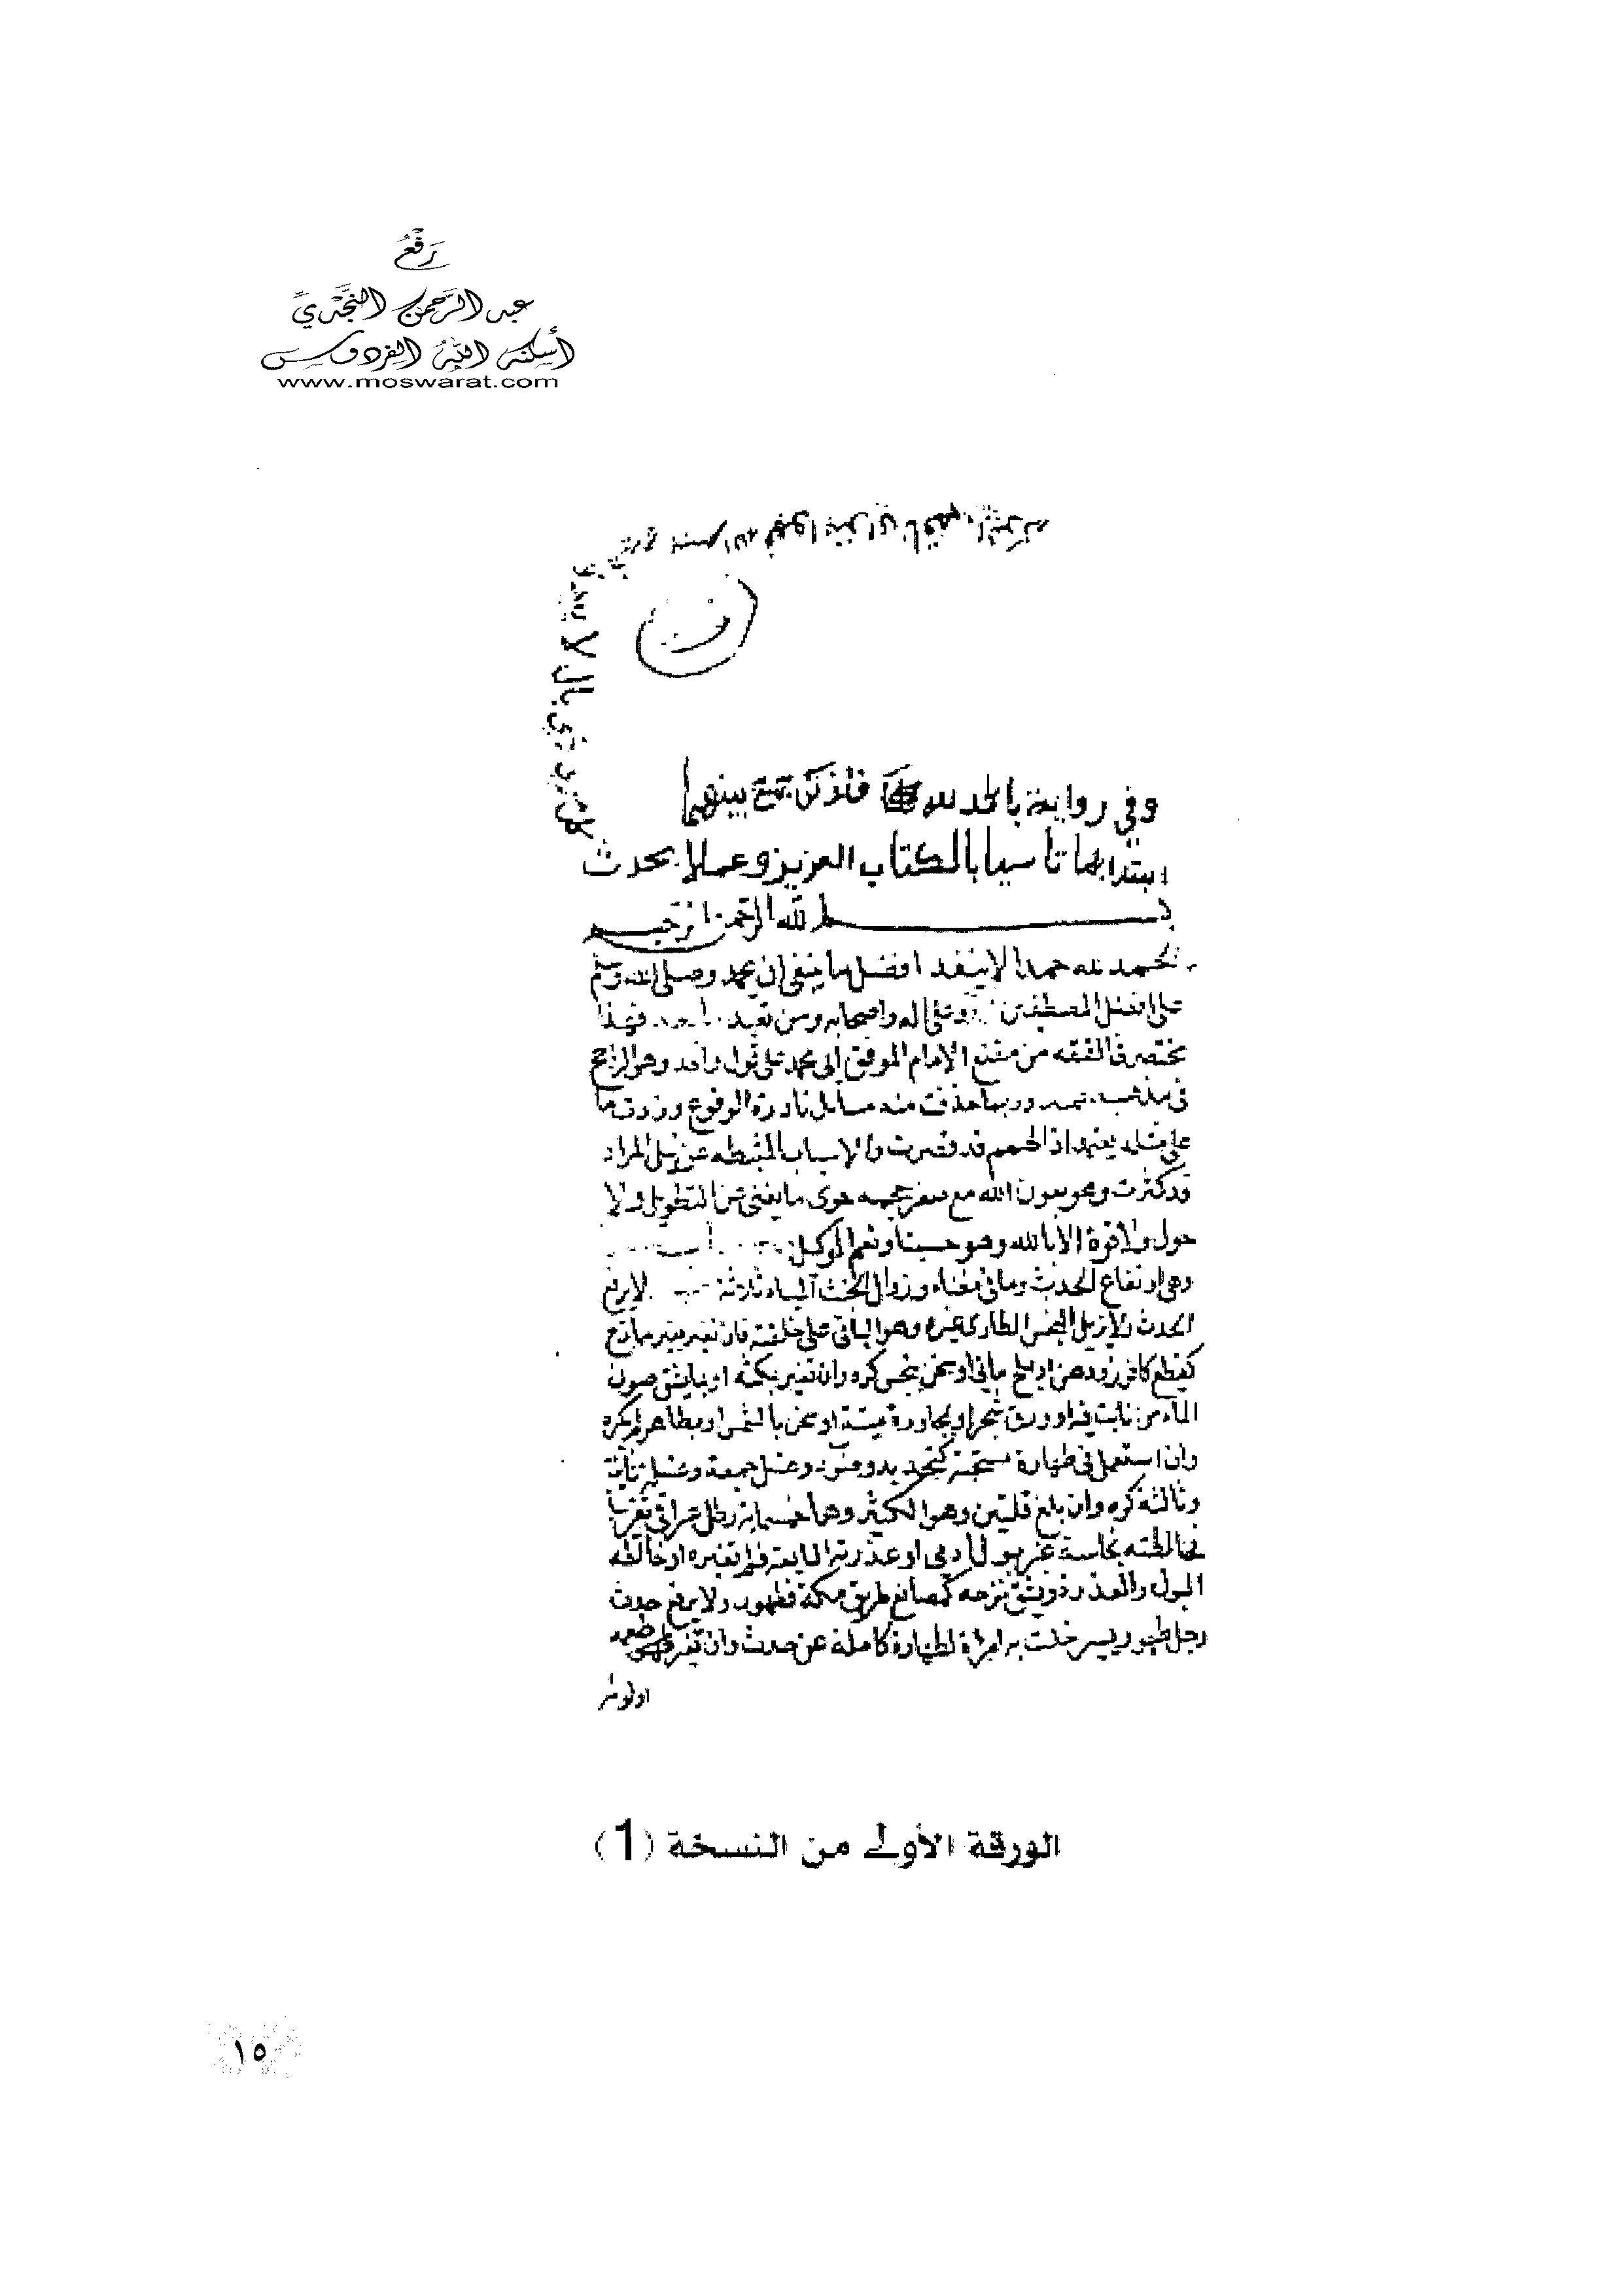 رَفْعُ
عبد الرَّحمن النَّجْديِّ
أسكنه اللّهُ الفردوس
www.moswarat.com
كل ذي بال لا يبدأ
وفي رواية بالحمد لله فلذلك جمع بينهما
ابتدا بهما تاسيا بالكتاب العزيز وعملا بحدث
بسم الله الرحمن الرحيم
الحمد لله حمدا لا ينفد افضل ما ينبغي ان يحمد وصلى الله وسلم
على افضل المصطفين وعلى اله واصحابه ومن تعبد فهذا
مختصر في الفقه من مقنع الامام الموفق ابي محمد على قول واحد وهو الراجح
في مذهب احمد وربما حذفت منه مسائل نادرة الوقوع وزدت ما
على مثله يعتمد اذ الهمم قد قصرت والاسباب المثبطة عن نيل المراد
قد كثرت وهو بعون الله مع صغر حجمه حوى ما يغني عن التطويل ولا
حول ولا قوة الا بالله وهو حسبنا ونعم الوكيل
وهي ارتفاع الحدث وما في معناه وزوال الخبث المياه ثلاثة لا يرفع
الحدث ولا يزيل النجس الطاري غيره وهو الباقي على خلقته فان تغير بغير ممازج
كقطع كافور ودهن او ملح مائي او سخن بنجس كره وان تغير بمكثه او بما يشق صون
الماء من نابت فيه او ورق شجر او بمجاورة ميتة او سخن بالشمس او بطاهر لم يكره
وان استعمل في طهارة مستحبة كتجديد وضوء وغسل جمعة وغسلة ثانية
وثالثة كره وان بلغ قلتين وهو الكثير وهما خمسماية رطل عراقي تقريبا
فخالطته نجاسة غير بول ادمي او عذرته المايعة فلم تغيره او خالطه
البول والعذرة ويشق نزحه كمصانع طريق مكة فطهور ولا يرفع حدث
رجل طهور يسير خلت به امراة لطهارة كاملة عن حدث وان تغير طعمه
او لونه
الورقة الأولى من النسخة (1)
١٥